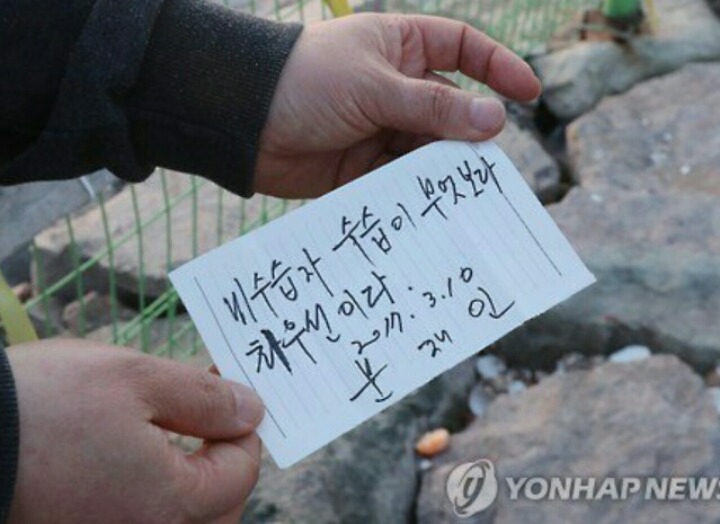 미수습자 수습이 무엇보다
최우선이다.
2017. 3. 10
문 재 인
YONHAP NEWS